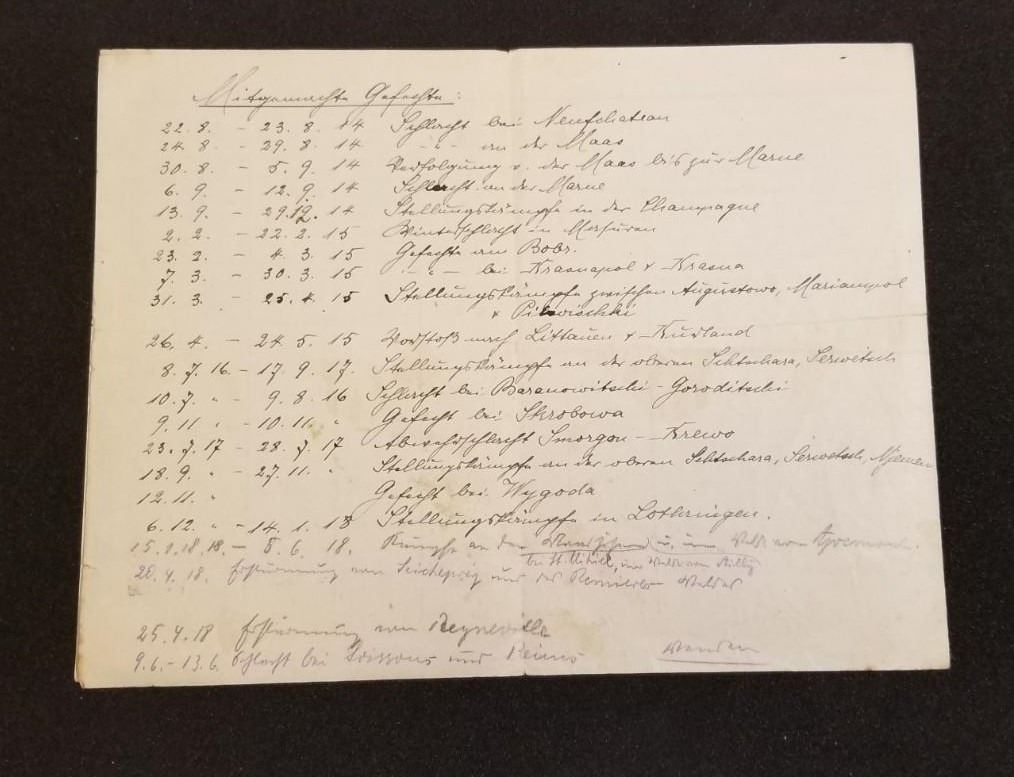 Mitgemachte Gefechte:
22. 8. - 23. 8. 14 Schlacht bei Neufchateau
24. 8 - 29. 8. 14 - " - an der Maas
30. 8. - 5. 9. 14 Verfolgung v. der Maas bis zur Marne
6. 9. - 12. 9. 14 Schlacht an der Marne
13. 9. - 29.12. 14 Stellungskämpfe in der Champagne
2. 2. - 22. 2. 15 Winterschlacht in Masuren
23. 2. - 4. 3. 15 Gefechte am Bobr.
7. 3. - 30. 3. 15 - " - bei Krasnapol & Krasna
31. 3. - 25. 4. 15 Stellungskämpfe zwischen Augustowo, Mariampol
& Pilwischki
26. 4. - 24. 5. 15 Vorstoß nach Littauen & Kurland
8. 7. 16. - 17. 9. 17. Stellungskämpfe an der oberen Schtschara, Serwetsch
10. 7. " - 9. 8. 16 Schlacht bei Baranowitschi - Goroditschi
9. 11 " - 10. 11. " Gefecht bei Skrobowa
23. 7. 17 - 28. 7. 17 Abwehrschlacht Smorgon - Krewo
18. 9. " - 27. 11. " Stellungskämpfe an der oberen Schtschara, Serwetsch, Njemen
12. 11. " Gefecht bei Wygoda
6. 12. " - 14. 1. 18 Stellungskämpfe in Lothringen.
18. - 8. 6. 18. Kämpfe an der u. im Walde von
bei St. Mihiel, im Walde von Ailly
20. 4. 18. Erstürmung von Seicheprey und des Remières Waldes
25. 4. 18 Erstürmung von Regneville
9. 6. - 13. 6. Schlacht bei Soissons und Reims
Wenden